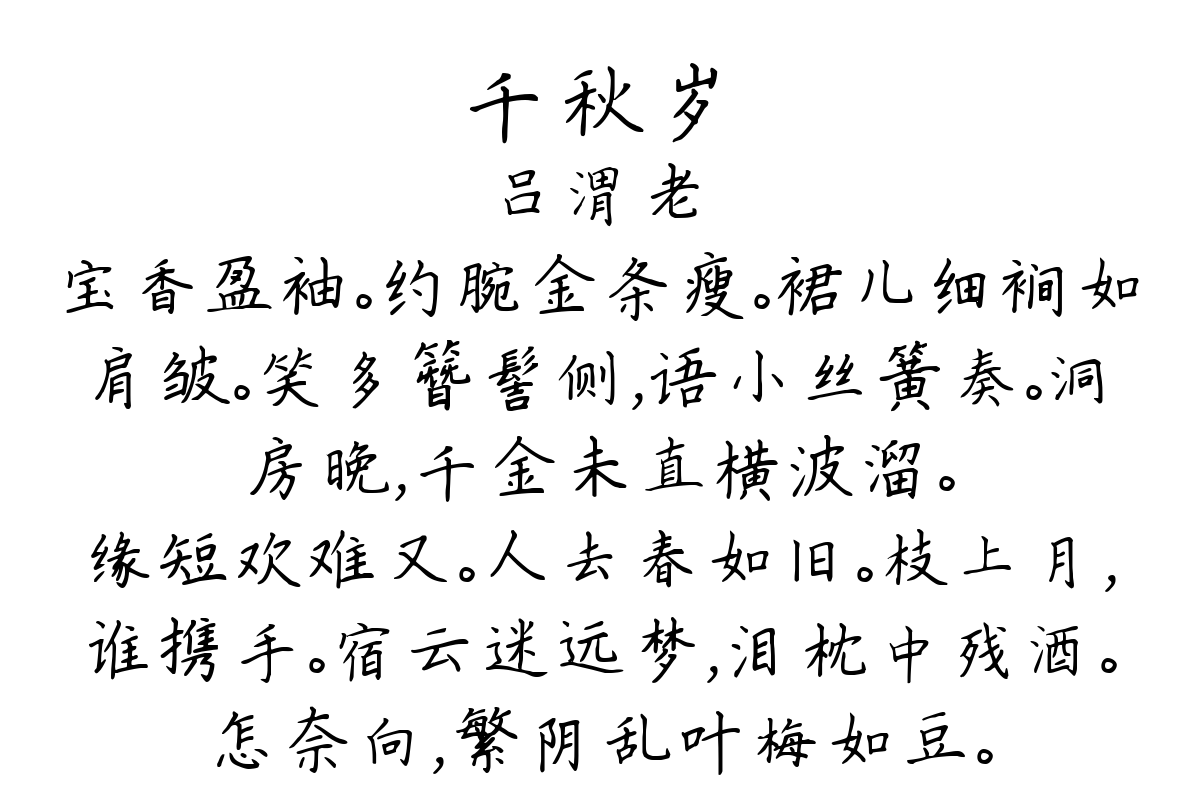 千秋岁
吕渭老
宝香盈袖。约腕金条瘦。裙儿细裥如
肩皱。笑多簪髻侧,语小丝簧奏。洞
房晚,千金未直横波溜。
缘短欢难又。人去春如旧。枝上月,
谁携手。宿云迷远梦,泪枕中残酒。
怎奈向,繁阴乱叶梅如豆。